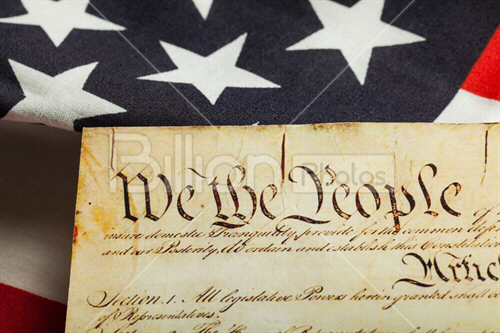 We the People
insure domestic Tranquility, provide for the common
and our Posterity, do ordain and establish this
Article
Section 1. All legislative Powers herein granted shall
of Representatives.
Billion
Photos